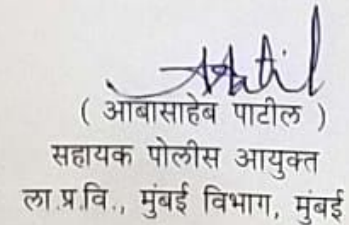 ( आबासाहेब पाटील )
सहायक पोलीस आयुक्त
ला.प्र.वि., मुंबई विभाग, मुंबई